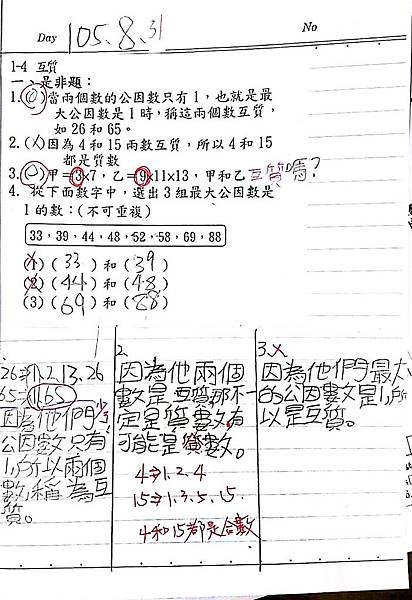 Day 105.8.31 No
1-4 互質
一、是非題：
1.(○)當兩個數的公因數只有1，也就是最
大公因數是1時，稱這兩個數互質，
如26和65。
2.(X)因為4和15兩數互質，所以4和15
都是質數
3. 甲=3×7，乙=9×11×13，甲和乙互質嗎？
4. 從下面數字中，選出3組最大公因數是
1的數：(不可重複)
33，39，44，48，52，58，69，88
(1)(33)和(39)
(2)(44)和(48)
(3)(69)和(88)
26⇒1.2.13.26
65⇒1.65
因為他們
公因數只有
1,所以兩個
數稱為互
質。
2.
因為他兩個
數是互質那不一
定是質數有
可能是質數。
4⇒1.2.4
15⇒1.3.5.15.
4和15都是合數
3.X
因為他們最大
的公因數是1,所
以是互質。